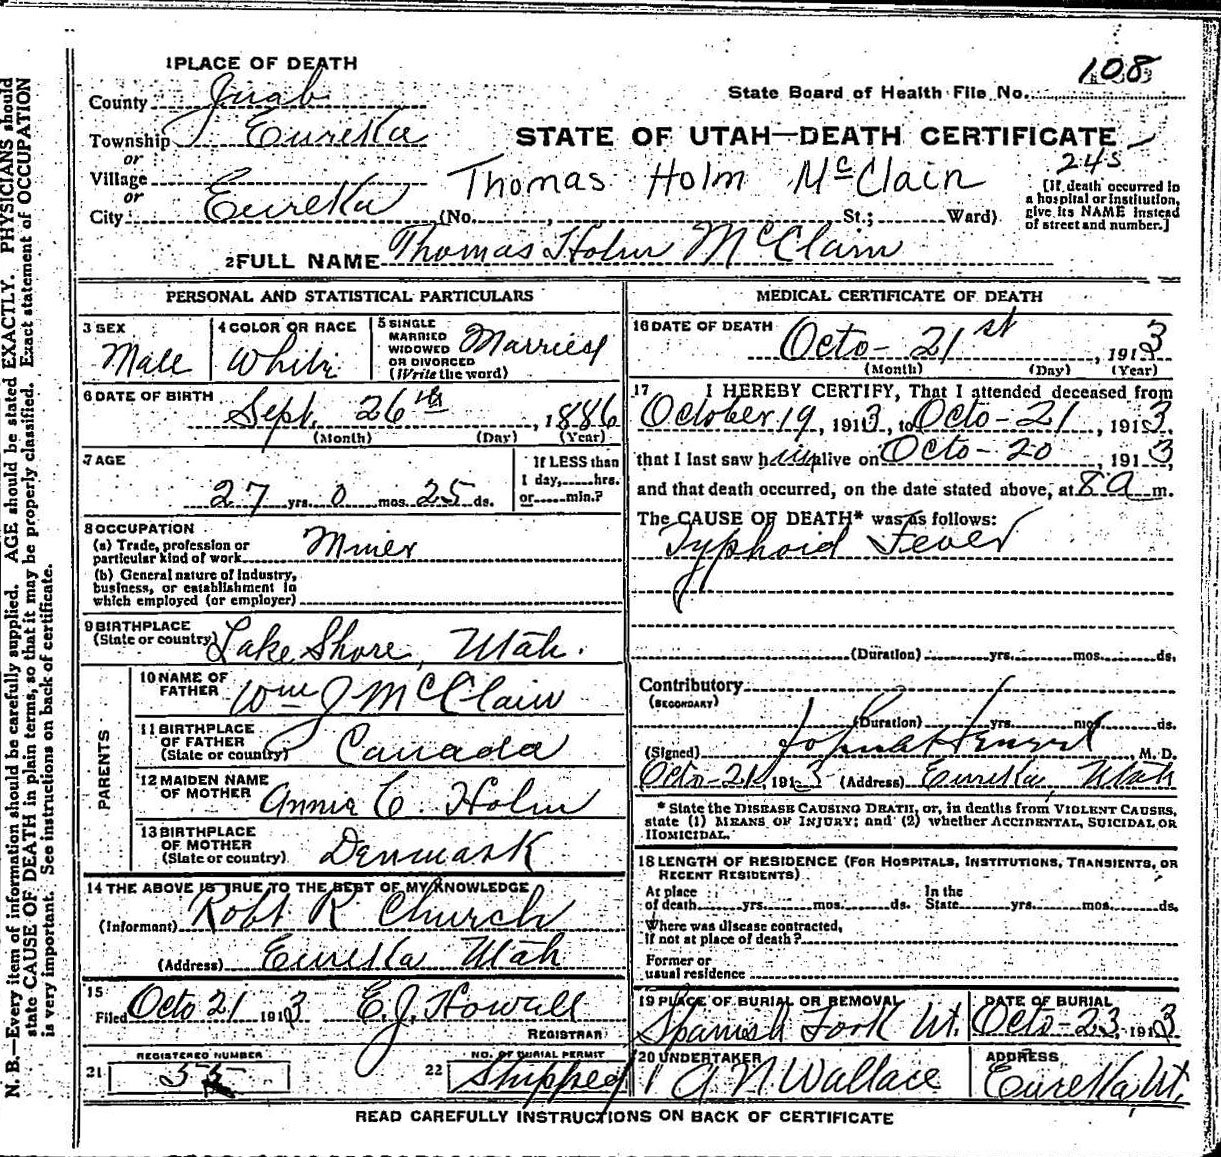 1 PLACE OF DEATH
108
County Juab
State Board of Health File No.
Township Eureka
STATE OF UTAH—DEATH CERTIFICATE
or
245
Village
Thomas Holm McClain
[If death occurred in a hospital or institution, give its NAME instead of street and number.]
or
City Eureka (No. , St.; Ward)
2 FULL NAME Thomas Holm McClain
PERSONAL AND STATISTICAL PARTICULARS
3 SEX Male
4 COLOR OR RACE White
5 SINGLE MARRIED WIDOWED OR DIVORCED (Write the word) Married
6 DATE OF BIRTH
Sept. 26th, 1886
(Month) (Day) (Year)
7 AGE
27 yrs. 0 mos. 25 ds.
If LESS than 1 day, hrs. or min.?
8 OCCUPATION
(a) Trade, profession or particular kind of work Miner
(b) General nature of industry, business, or establishment in which employed (or employer)
9 BIRTHPLACE (State or country) Lake Shore, Utah.
PARENTS
10 NAME OF FATHER Wm J McClain
11 BIRTHPLACE OF FATHER (State or country) Canada
12 MAIDEN NAME OF MOTHER Annie C. Holm
13 BIRTHPLACE OF MOTHER (State or country) Denmark
14 THE ABOVE IS TRUE TO THE BEST OF MY KNOWLEDGE
(Informant) Robt R Church
(Address) Eureka Utah
15
Filed Octo 21 1913 E. J. Howell
REGISTRAR
21 REGISTERED NUMBER
22 NO. OF BURIAL PERMIT Shipped
MEDICAL CERTIFICATE OF DEATH
16 DATE OF DEATH Octo- 21st, 1913
(Month) (Day) (Year)
17 I HEREBY CERTIFY, That I attended deceased from
October 19, 1913, to Octo-21, 1913,
that I last saw him alive on Octo-20, 1913,
and that death occurred, on the date stated above, at 8 a m.
The CAUSE OF DEATH* was as follows:
Typhoid Fever
(Duration) yrs. mos. ds.
Contributory
(SECONDARY)
(Duration) yrs. mos. ds.
(Signed) M. D.
Octo-21, 1913 (Address) Eureka, Utah
* State the DISEASE CAUSING DEATH, or, in deaths from VIOLENT CAUSES,
state (1) MEANS OF INJURY; and (2) whether ACCIDENTAL, SUICIDAL OR
HOMICIDAL.
18 LENGTH OF RESIDENCE (FOR HOSPITALS, INSTITUTIONS, TRANSIENTS, OR
RECENT RESIDENTS)
At place of death yrs. mos. ds. In the State yrs. mos. ds.
Where was disease contracted, If not at place of death?
Former or usual residence
19 PLACE OF BURIAL OR REMOVAL DATE OF BURIAL
Spanish Fork Ut. Octo-23, 1913
20 UNDERTAKER ADDRESS
A N Wallace Eureka, Ut.
READ CAREFULLY INSTRUCTIONS ON BACK OF CERTIFICATE
N. B.—Every item of information should be carefully supplied. AGE should be stated EXACTLY. PHYSICIANS should
state CAUSE OF DEATH in plain terms, so that it may be properly classified. Exact statement of OCCUPATION
is very important. See instructions on back of certificate.